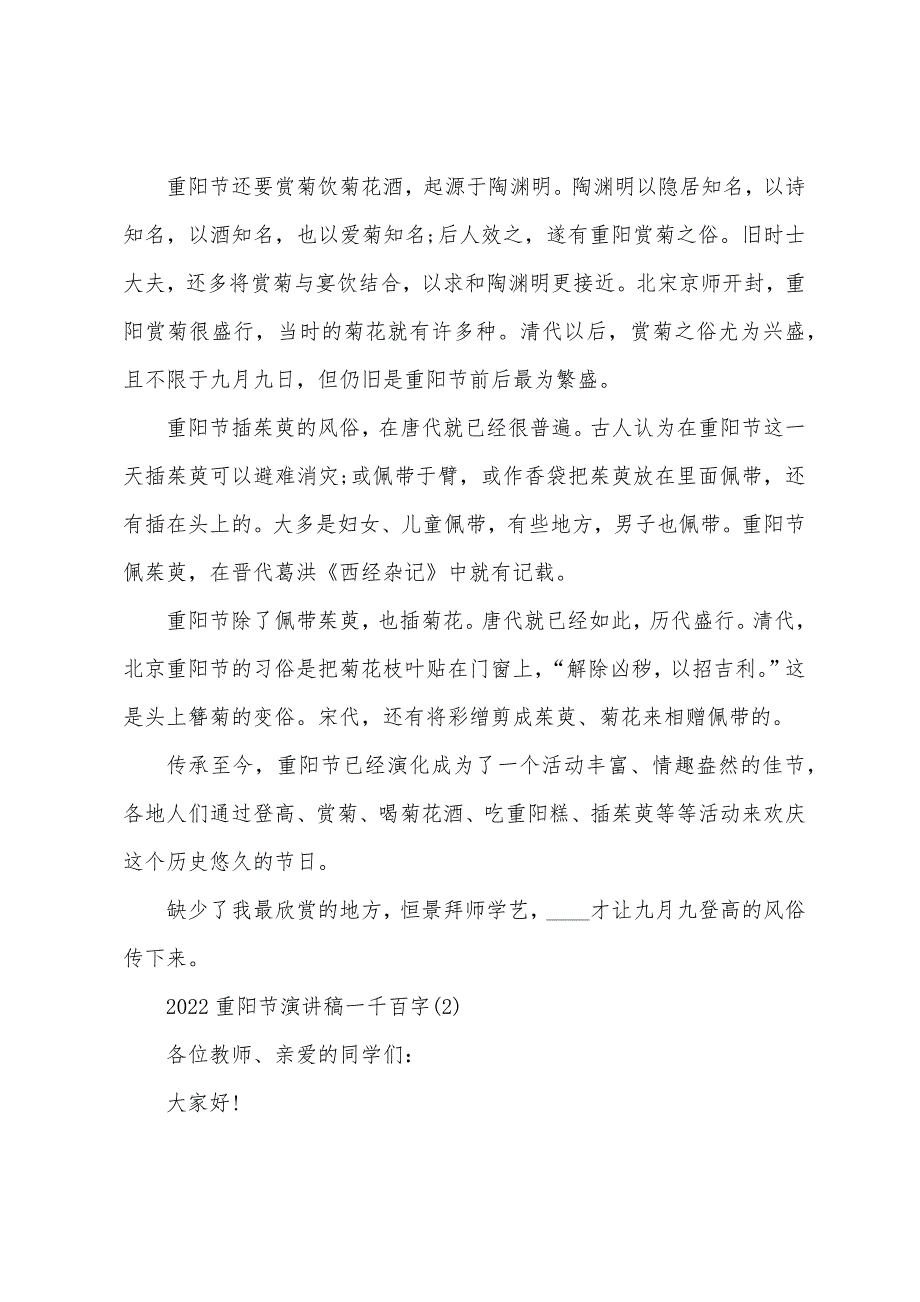 重阳节还要赏菊饮菊花酒，起源于陶渊明。陶渊明以隐居知名，以诗
知名，以酒知名，也以爱菊知名;后人效之，遂有重阳赏菊之俗。旧时士
大夫，还多将赏菊与宴饮结合，以求和陶渊明更接近。北宋京师开封，重
阳赏菊很盛行，当时的菊花就有许多种。清代以后，赏菊之俗尤为兴盛，
且不限于九月九日，但仍旧是重阳节前后最为繁盛。
重阳节插茱萸的风俗，在唐代就已经很普遍。古人认为在重阳节这一
天插茱萸可以避难消灾;或佩带于臂，或作香袋把茱萸放在里面佩带，还
有插在头上的。大多是妇女、儿童佩带，有些地方，男子也佩带。重阳节
佩茱萸，在晋代葛洪《西经杂记》中就有记载。
重阳节除了佩带茱萸，也插菊花。唐代就已经如此，历代盛行。清代，
北京重阳节的习俗是把菊花枝叶贴在门窗上，“解除凶秽，以招吉利。”这
是头上簪菊的变俗。宋代，还有将彩缯剪成茱萸、菊花来相赠佩带的。
传承至今，重阳节已经演化成为了一个活动丰富、情趣盎然的佳节，
各地人们通过登高、赏菊、喝菊花酒、吃重阳糕、插茱萸等等活动来欢庆
这个历史悠久的节日。
缺少了我最欣赏的地方，恒景拜师学艺，____才让九月九登高的风俗
传下来。
2022重阳节演讲稿一千百字(2)
各位教师、亲爱的同学们：
大家好!